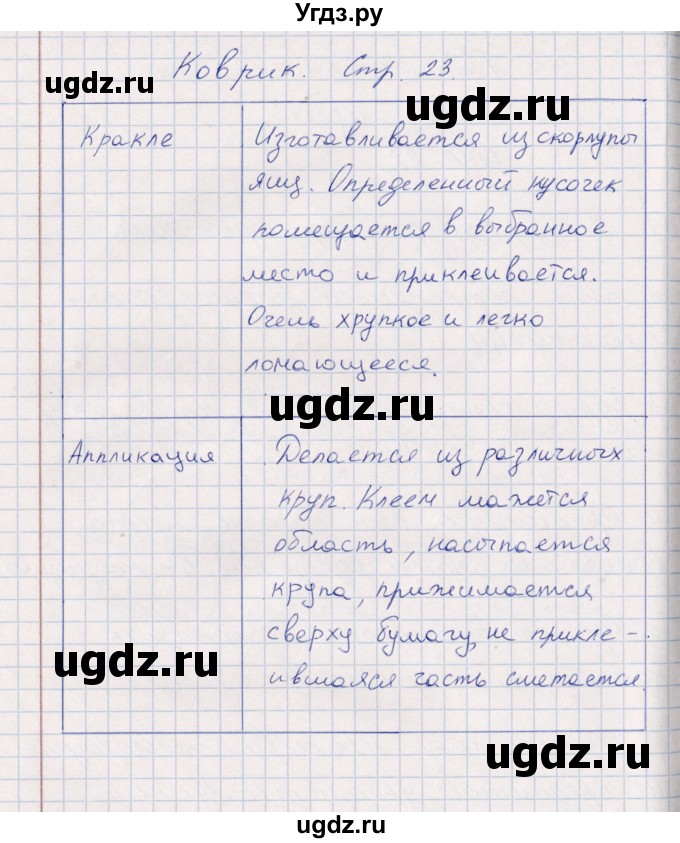 Угдз.ру
Коврик. Стр. 23.
ugdz.ru
ugdz.ru
Кракле
Изготавливается из скорлупы
яиц. Определенный кусочек
помещается в выбранное
место и приклеивается.
Очень хрупкое и легко
ломающееся.
ugdz.ru
Аппликация
Делается из различных
круп. Клеем мажется
область, насыпается
крупа, прижимается
сверху бумагу, не прикле-
ившаяся часть сметается.
ugdz.ru
ugdz.ru
ugdz.ru